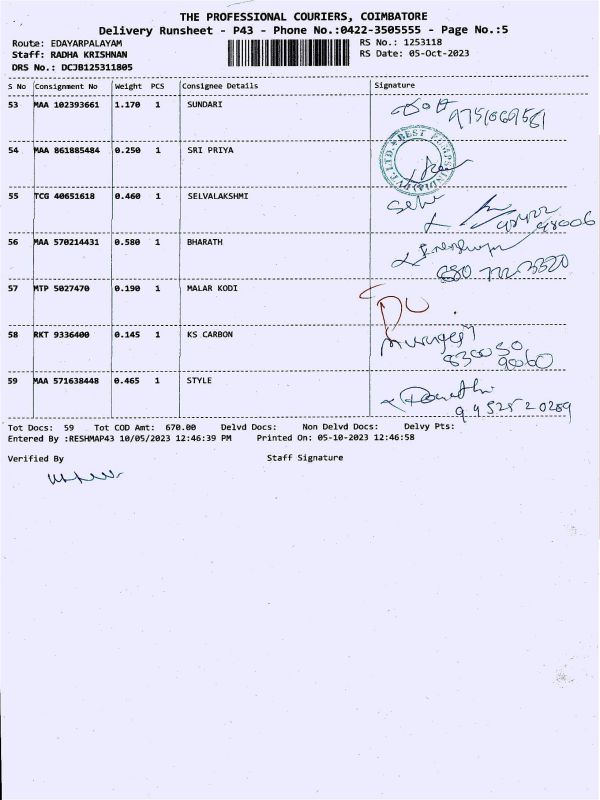 THE PROFESSIONAL COURIERS, COIMBATORE
Delivery Runsheet - P43 - Phone No.:0422-3505555 - Page No.:5
Route: EDAYARPALAYAM RS No.: 1253118
Staff: RADHA KRISHNAN RS Date: 05-Oct-2023
DRS No.: DCJB125311805
S No Consignment No Weight PCS Consignee Details Signature
53 MAA 102393661 1.170 1 SUNDARI
9751069561
54 MAA 861885484 0.250 1 SRI PRIYA
BEST PUMPS
55 TCG 40651618 0.460 1 SELVALAKSHMI
Selvi
56 MAA 570214431 0.580 1 BHARATH
57 MTP 5027470 0.190 1 MALAR KODI
58 RKT 9336400 0.145 1 KS CARBON
Murugesh
59 MAA 571638448 0.465 1 STYLE
Tot Docs: 59 Tot COD Amt: 670.00 Delvd Docs: Non Delvd Docs: Delvy Pts:
Entered By :RESHMAP43 10/05/2023 12:46:39 PM Printed On: 05-10-2023 12:46:58
Verified By Staff Signature